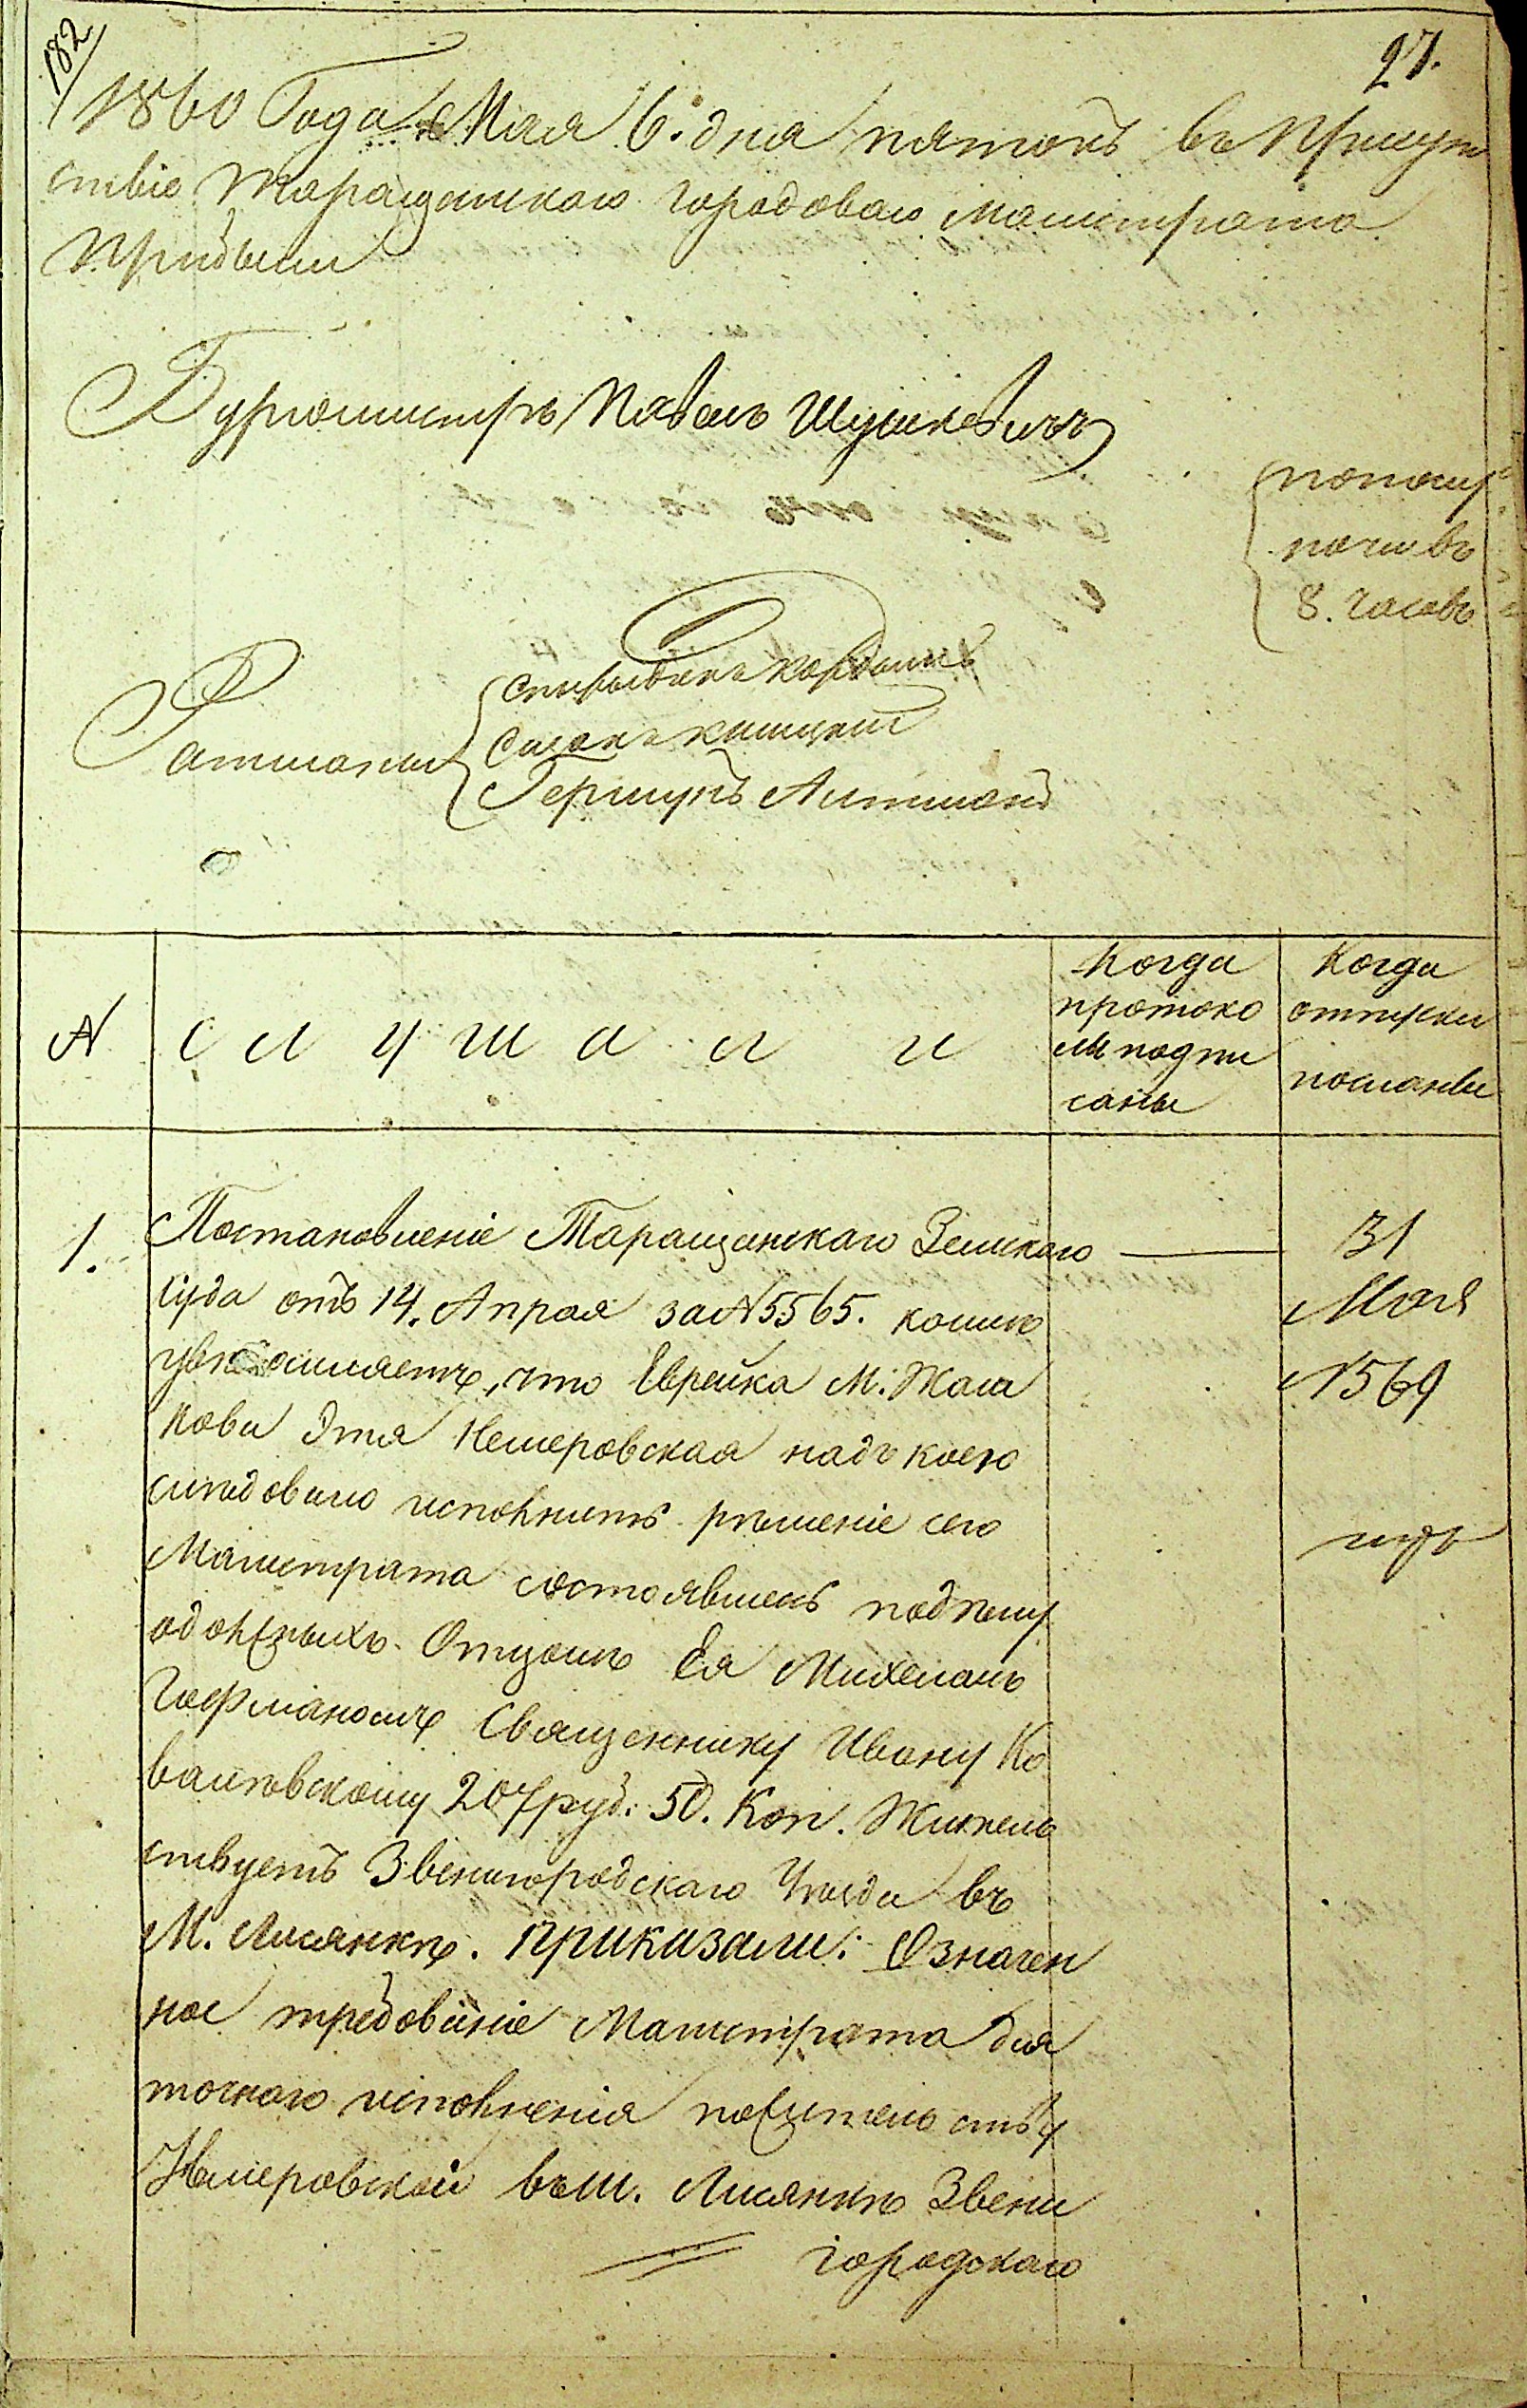 182
27.
1860 Года Мая 6. дня пятокъ въ Присут
ствіе Таращанскаго городоваго магистрата
Прибыли
Бургомистръ Павелъ Шушкевичъ
пополу
ночи въ
8. часовъ
Ратманы
Спиридонъ Кордышъ
Гершунъ Алтманъ
№
С л у ш а л и
Когда
протоко
лы подпи
саны
Когда
отпуски
посланы
1.
Постановленіе Таращанскаго Земскаго
Суда отъ 14. Апрля за №5565. коимъ
увѣдомляетъ, что Еврейка М. Жаш
кова Этя Немеровская надъ коею
слѣдовало исполнить рѣшеніе сего
Магистрата состоявшеесь по дѣлу
одолженыхъ Отцомъ Ея Михелемъ
Гофманомъ Священнику Ивану Ко
валевскому 207 руб. 50. Коп. Житель
ствуетъ Звенигородскаго Уѣзда въ
М. Лисянкѣ. Приказали: Означен
ное требованіе Магистрата для
точнаго исполненія по жительству
Немеровской въ м. Лисянкѣ Звени
городскаго
31
Мая
№569